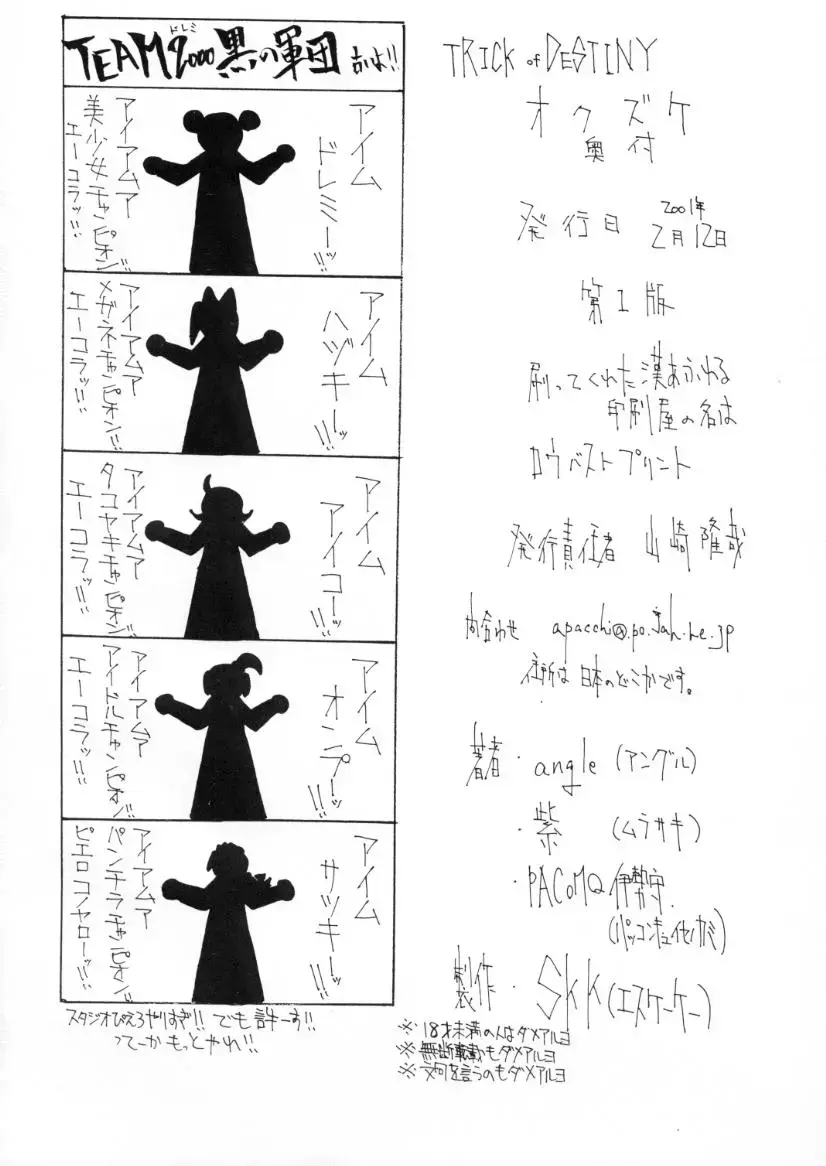 TEAM 2000 黒の軍団
ドレミ
アイム
ドレミーッ!!
アイアムア
美少女チャンピオン!!
エーコラッ!!!
アイム
ハヅキーッ!!!
アイアムア
メガネチャンピオン!!
エーコラッ!!!
アイム
アイコーッ!!!
アイアムア
タコヤキチャンピオン!!
エーコラッ!!!
アイム
オンプーッ!!!
アイアムア
アイドルチャンピオン!!
エーコラッ!!!
アイム
サツキーッ!!!
アイアムア
パンチラチャンピオン!!
ピエロコノヤローッ!!!
スタジオぴえろやりすぎ!! でも許ーす!!
つてーかもっとやれ!!
TRICK of DESTINY
オクズケ
奥付
発行日 2001年
2月12日
第1版
刷ってくれた漢あふれる
印刷屋の名は
ロウベストプリント
発行責任者 山崎隆哉
問合わせ apacchi@po.jah.ne.jp
住所は日本のどこかです。
著者・angle(アングル)
・紫 (ムラサキ)
・PACoMQ伊勢守
製作・SKK(エスケーケー)
※18才未満の人はダメアルヨ
※無断転載もダメアルヨ
※文句を言うのもダメアルヨ